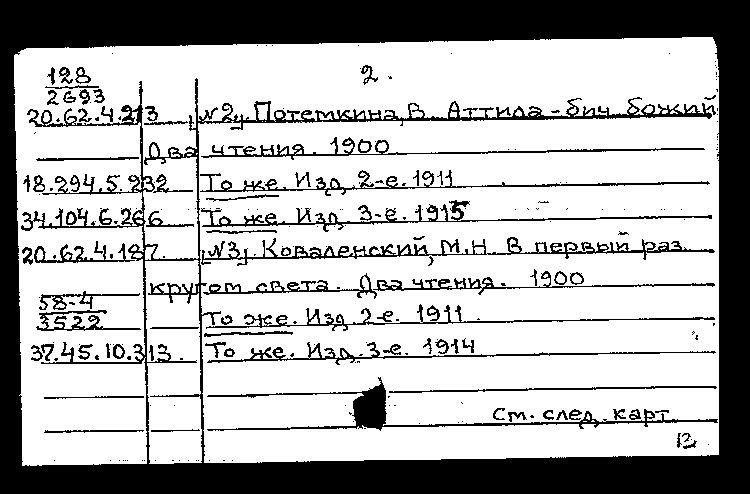 128
2693
2.
20.62.4.213 [N2] Потемкина, В. Аттила - бич божий
Два чтения. 1900
18.294.5.232 То же. Изд. 2-е. 1911
34.104.6.266 То же. Изд. 3-е. 1915
20.62.4.187. [N3] Коваленский, М.Н. В первый раз
кругом света. Два чтения. 1900
58-4
3522
То же. Изд. 2-е. 1911.
37.45.10.313. То же. Изд. 3-е. 1914
См. след. карт.